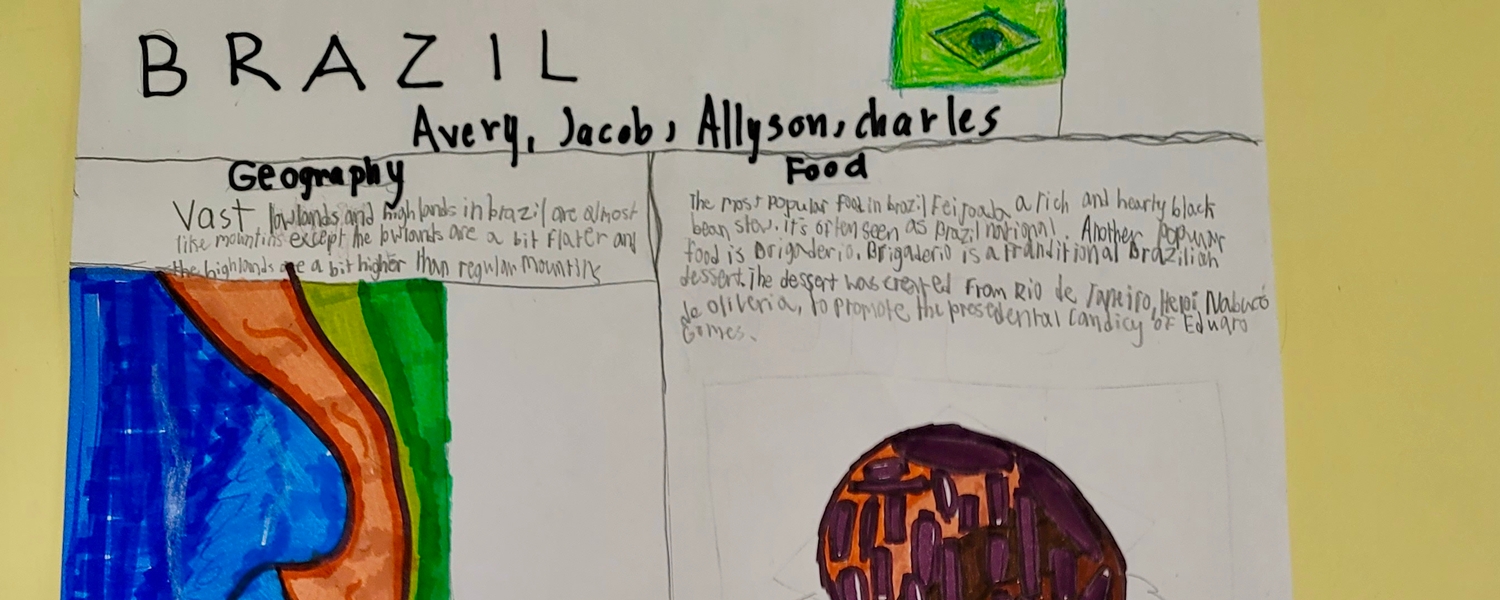 BRAZIL
Avery, Jacob, Allyson, charles
Geography
Vast lowlands and highlands in brazil are almost
like mountins except the lowlands are a bit flater and
the highlands are a bit higher than regular mountins
Food
The most popular food in brazil Feijoada a rich and hearty black
bean stew. it's often seen as Brazil national. Another popular
food is Brigaderio. Brigaderio is a tranditional Brazilian
dessert. The dessert was created From Rio de Janeiro, Heroi Nabuco
de oliveria, to promote the presedental candicy of Eduaro
Gomes.